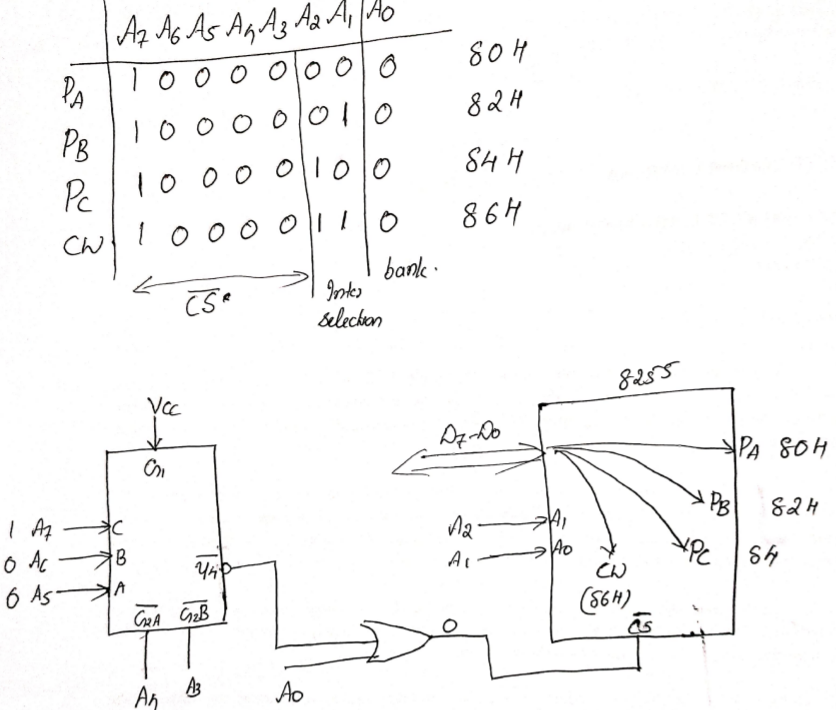 A7 A6 A5 A4 A3 A2 A1 A0
PA 1 0 0 0 0 0 0 0 80H
PB 1 0 0 0 0 0 1 0 82H
PC 1 0 0 0 0 1 0 0 84H
CW 1 0 0 0 0 1 1 0 86H
CS
selection
bank.
8255
VCC
G1
1 A7 C
0 A6 B
0 A5 A
Y4
G2A G2B
A4 A3
A0
0
D7-D0
A2 A1
A1 A0
PA 80H
PB 82H
PC 84
CW
(86H)
CS